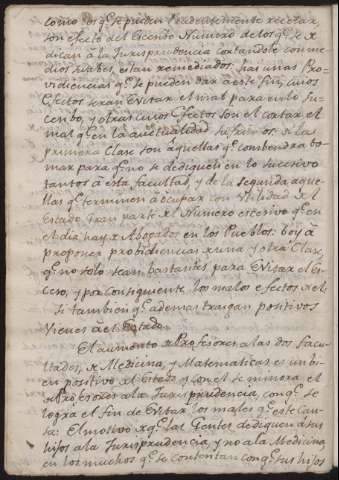 como los q.e se pueden prudentemente recelar,
son efecto del crecido Numero de los q.e se
dican á la Jurisprudencia cortandole con me
dios suabes, estan remediados. Las unas Pro-
videncias q.e se pueden dar á este fin, cuios
efectos serán evitar el mal para en lo su-
cesibo, y otras cuios efectos son el cortar el
mal q.e en la actualidad sufrimos. De la
primera Clase son aquellas q.e combendra to-
mar para q.e no se dediquen en lo sucesivo
tantos á esta facultad, y de la segunda aque-
llas q.e terminen á ocupar con utilidad del
estado gran parte del Numero excesivo q.e en
el dia hay de Abogados en los Pueblos. Voy á
proponer probidencias de una y otra Clase,
q.e no solo sean bastantes para evitar el ex-
ceso, y por consiguiente los malos efectos de el
si tambien q.e ademas traigan positivos
vienes á el Estado.
El aumento de Profesores a las dos facu-
ltades, de Medicina, y Matematicas es un bi-
en positivo al Estado y con el se minora el
de Profesores a la Jurisprudencia, con q.e se
logra el fin de evitar los males q.e este cau-
sa: El motivo de q.e las Gentes dediquen a sus
hijos a la Jurisprudencia, y no a la Medicina
en los muchos q.e se contentan con q.e sus hijos